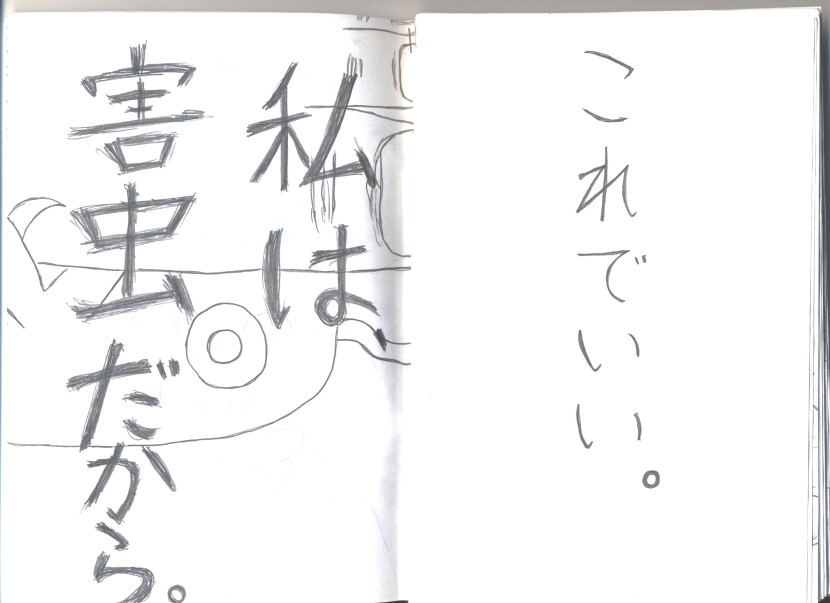 これでいい。
私は
害虫だから。